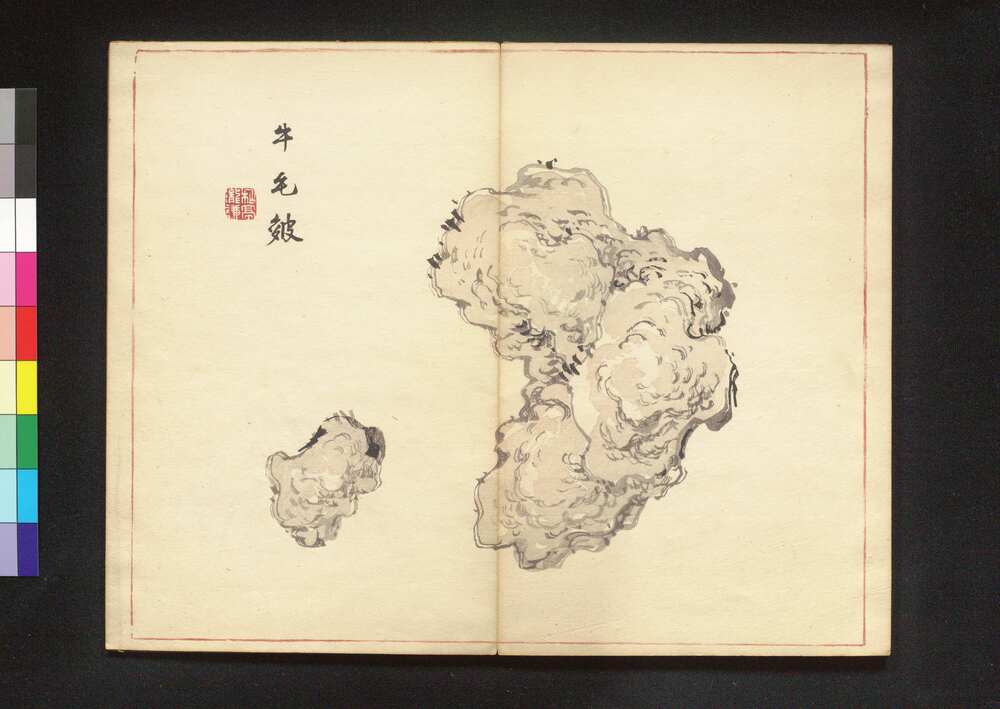 牛毛皴